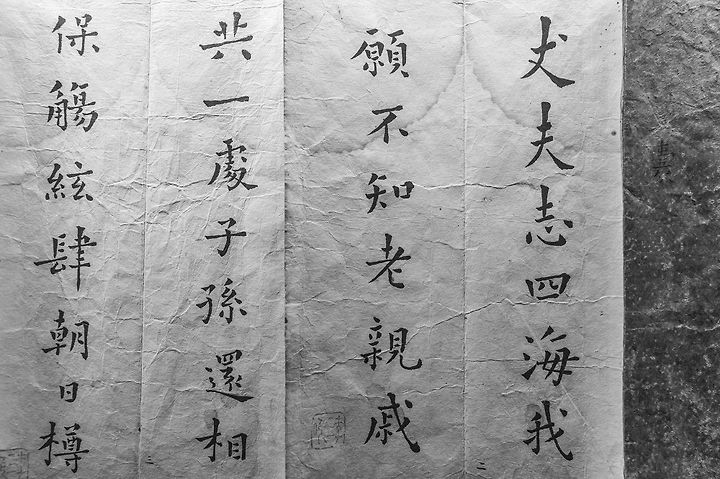 丈夫志四海我
願不知老親戚
共一處子孫還相
保觴絃肆朝日樽
二
三